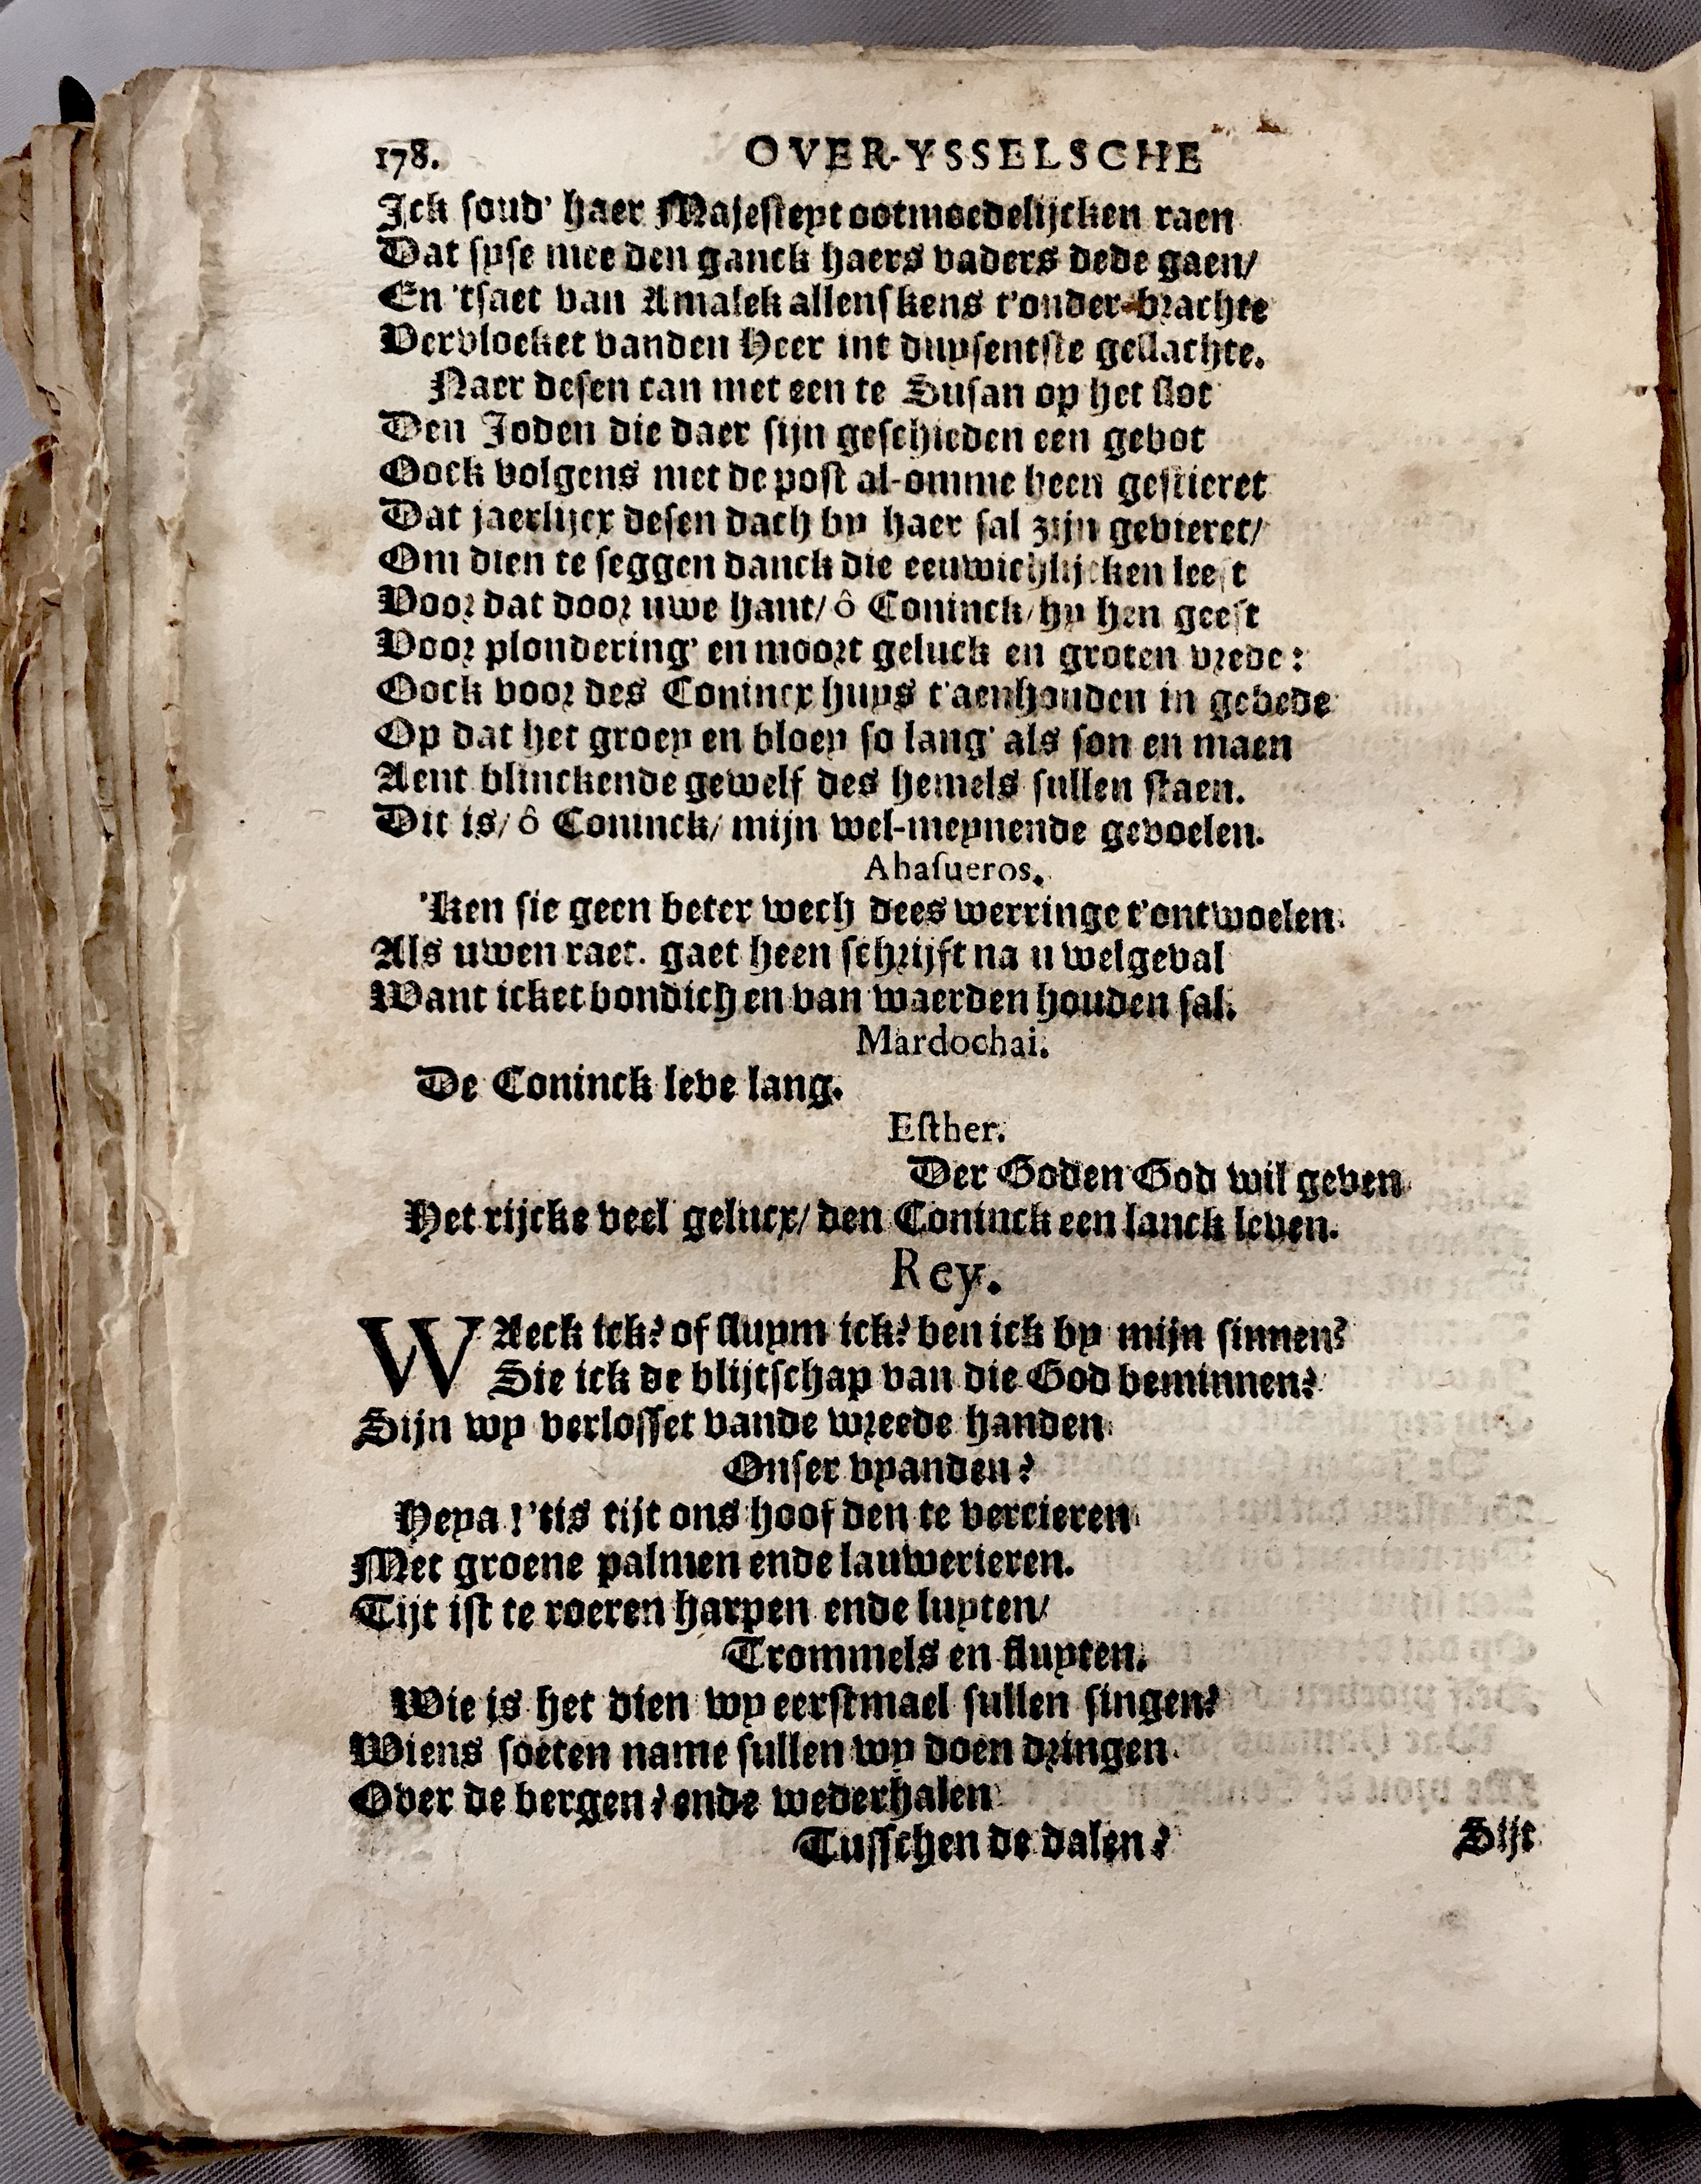 178. OVER-YSSELSCHE
Ick soud' haer Majesteyt ootmoedelijcken raen
Dat syse mee den ganck haers vaders dede gaen/
En 'tsaet van Amalek allenskens t'onder-brachte
Vervloeket vanden Heer int duysentste geslachte.
Naer desen can met een te Susan op het slot
Den Joden die daer sijn geschieden een gebot
Oock volgens met de post al-omme heen gestieret
Dat jaerlijcx desen dach by haer sal zijn gevieret/
Om dien te seggen danck die eeuwichlijcken leeft
Voor dat door uwe hant/ ô Coninck/ hy hen geeft
Voor plondering' en moort geluck en groten vrede:
Oock voor des Conincx huys t'aenhouden in gebede
Op dat het groey en bloey so lang' als son en maen
Aent blinckende gewelf des hemels sullen staen.
Dit is/ ô Coninck/ mijn wel-meynende gevoelen.
Ahasueros.
'Ken sie geen beter wech dees werringe t'ontwoelen.
Als uwen raet. gaet heen schrijft na u welgeval
Want icket bondich en van waerden houden sal.
Mardochai.
De Coninck leve lang.
Esther.
Der Goden God wil geven
Het rijcke veel gelucx/ den Coninck een lanck leven.
Rey.
WAeck ick? of sluym ick? ben ick by mijn sinnen?
Sie ick de blijtschap van die God beminnen?
Sijn wy verlosset vande wreede handen
Onser vyanden?
Heya! 'tis tijt ons hoofden te vercieren
Met groene palmen ende lauwerieren.
Tijt ist te roeren harpen ende luyten/
Trommels en fluyten.
Wie is het dien wy eerstmael sullen singen?
Wiens soeten name sullen wy doen dringen
Over de bergen? ende wederhalen
Tusschen de dalen?
Sijt